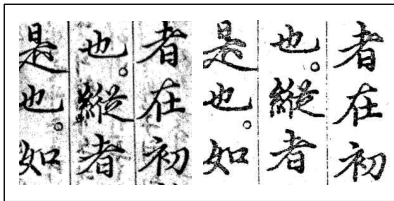 者在初
也。縱者
是也。如
者在初
也。縱者
是也。如